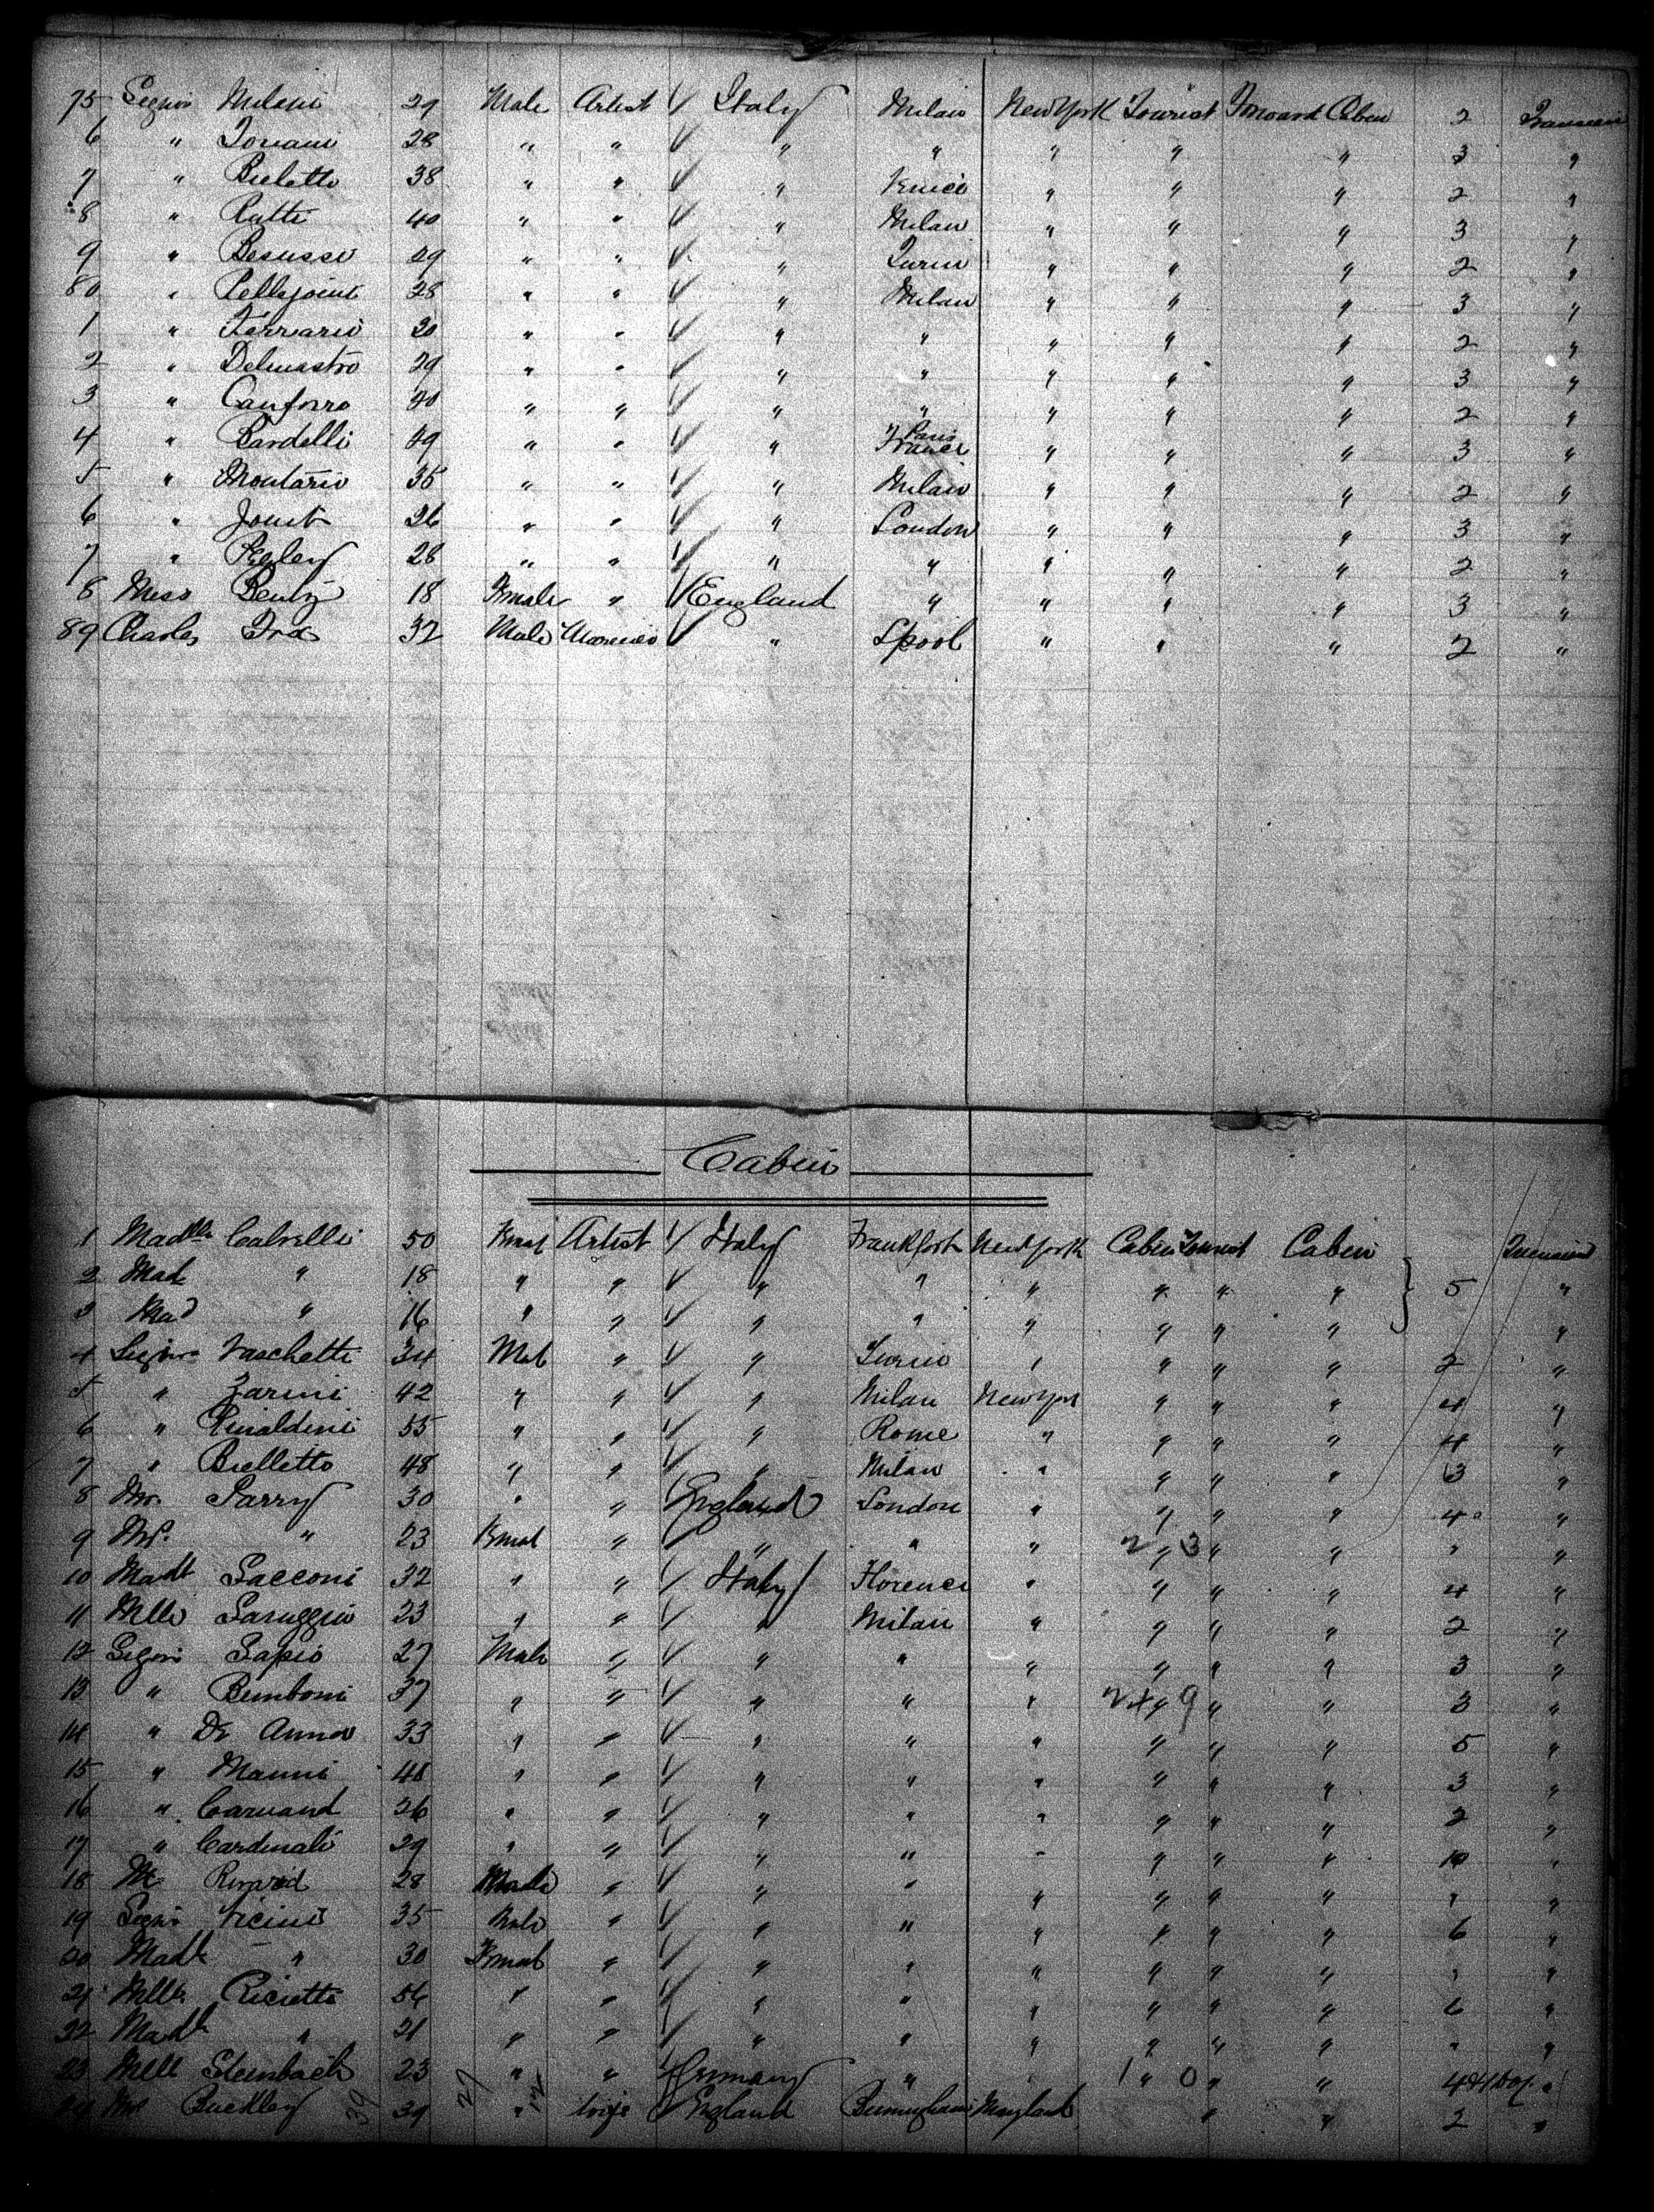 75 Signor Milani 29 Male Artist √ Italy Milan New York Tourist Forward Cabin 2
6 " Toriani 28 " " √ " " " " " 3 "
7 " Bieletto 38 " " √ " Venice " " " 2 "
8 " Ratti 40 " " √ " Milan " " " 3 "
9 " Besusse 29 " " √ " Turin " " " 2 "
80 " 28 " " √ " Milan " " " 3 "
1 " Ferrario 30 " " √ " " " " " 2 "
2 " Delmastro 29 " " √ " " " " " 3 "
3 " Canforro " " √ " " " " " 2 "
4 " Bardelli 49 " " √ " Paris France " " " 3 "
5 " Montario 35 " " √ " Milan " " " 2 "
6 " 26 " " √ " London " " " 3 "
7 " Begley 28 " " √ " " " " " 2 "
8 Miss 18 Female " √ England " " " " 3 "
89 Charles 32 Male √ " Lpool " " " 2 "
Cabin
1 Madlle Calvelli 50 Femal Artist √ Italy Frankfort New York Cabin Tourist Cabin
2 Mad " 18 " " √ " " " " " " } 5 "
3 Mad " 16 " " √ " " " " " " "
4 Signor Vaschette 34 Mal " √ " Turin " " " " 2 "
5 " Zarini 42 " " √ " Milan New York " " " 4 "
6 " Rinaldini 55 " " √ " Rome " " " " 4 "
7 " Bielletto 48 " " √ " Milan " " " " 3 "
8 Mr. Parry 30 " " England London " " " " 4 "
9 Mrs. " 23 Femal " √ " " " 2 " 3 " " " "
10 Madl Sacconi 32 " " √ Italy Florence " " " " 4 "
11 Mlle Saruggia 23 " " √ " Milan " " " " 2 "
12 Signor Sapio 27 Male " √ " " " " " " 3 "
13 " Bimboni 37 " " √ " " " 24 " 9 " " 3 "
14 " De Anna 33 " " √ " " " " " " 5 "
15 " Manni 48 " " √ " " " " " " 3 "
16 " 26 " " √ " " " " " " 2 "
17 " Cardinali 29 " " √ " " " " " " 10 "
18 28 Male " √ " " " " " " " "
19 Signor Vicini 35 Male " √ " " " " " " 6 "
20 Madl " 30 Femal " √ " " " " " " " "
21 Mlle Ricietto 56 " " √ " " " " " " 6 "
22 Madl " 21 " " √ " " " " " " " "
23 Mlle Steinbach 23 " " √ Germany " " 1 " 0 " " 4
24 Mrs Buckley 39 " Wife √ England Birmingham Maryland " " 2 "
39 27 12